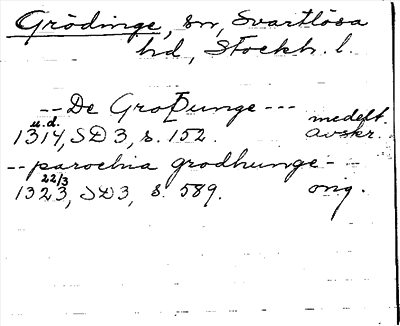 Grödinge, sn, Svartlösa
hd, Stockh. l.
-- De Groþunge ---
medelt.
u.d.
1314, SD 3, s. 152. avskr.
-- parochia grodhunge -
22/3
1323, SD 3, s. 589. orig.